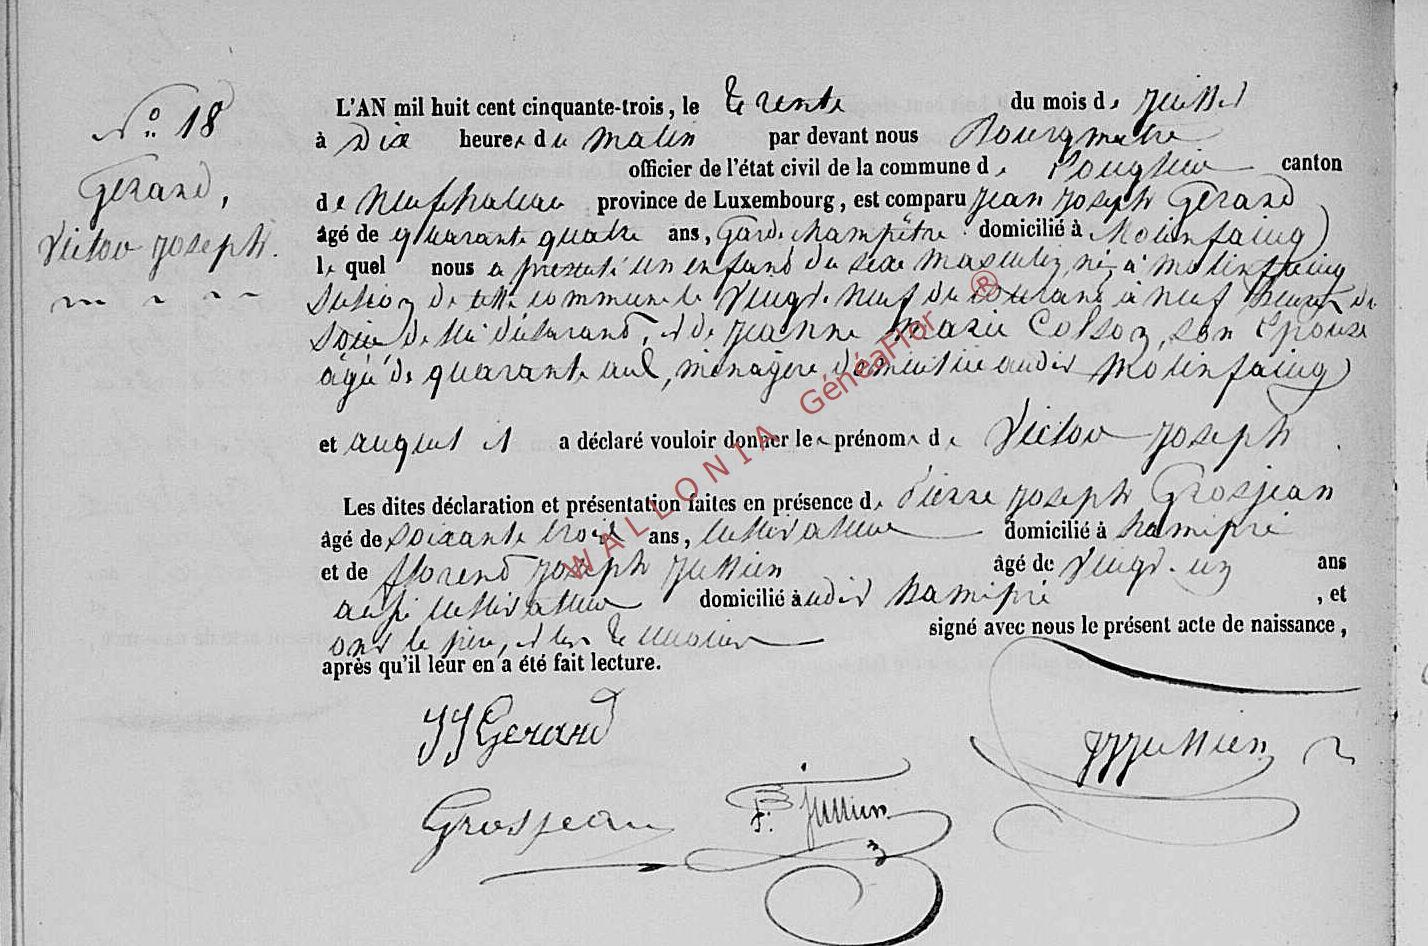 N° 18
Gérard,
Victor Joseph.
L'AN mil huit cent cinquante-trois, le trente du mois de Juillet
à dix heures du matin par devant nous Bourgmestre
officier de l'état civil de la commune de Longlier canton
de Neufchateau province de Luxembourg, est comparu Jean Joseph Gérard
âgé de quarante quatre ans, Garde champêtre domicilié à Molinfaing
lequel nous a presenté un enfant du sexe masculin, né à Molinfaing
section de cette commune le vingt-neuf du courant à neuf heures du
soir de lui déclarant, et de Jeanne Marie Colson, son Epouse
âgée de quarante ans, ménagère domiciliée audit Molinfaing
et auquel il a déclaré vouloir donner les prénoms de Victor Joseph.
Les dites déclaration et présentation faites en présence de Pierre Joseph Grosjean
âgé de soixante trois ans, cultivateur domicilié à hamipré
et de florent Joseph Jullien âgé de vingt-un ans
aussi cultivateur domicilié audit hamipré, et
ont le père, et les témoins signé avec nous le présent acte de naissance,
après qu'il leur en a été fait lecture.
JJ Gerard
JJ Jullien
Grosjean
F. Jullien
WALLONIA GénéaFlor ®